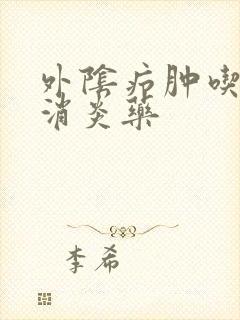 外陰疖肿喫
消炎藥
李希